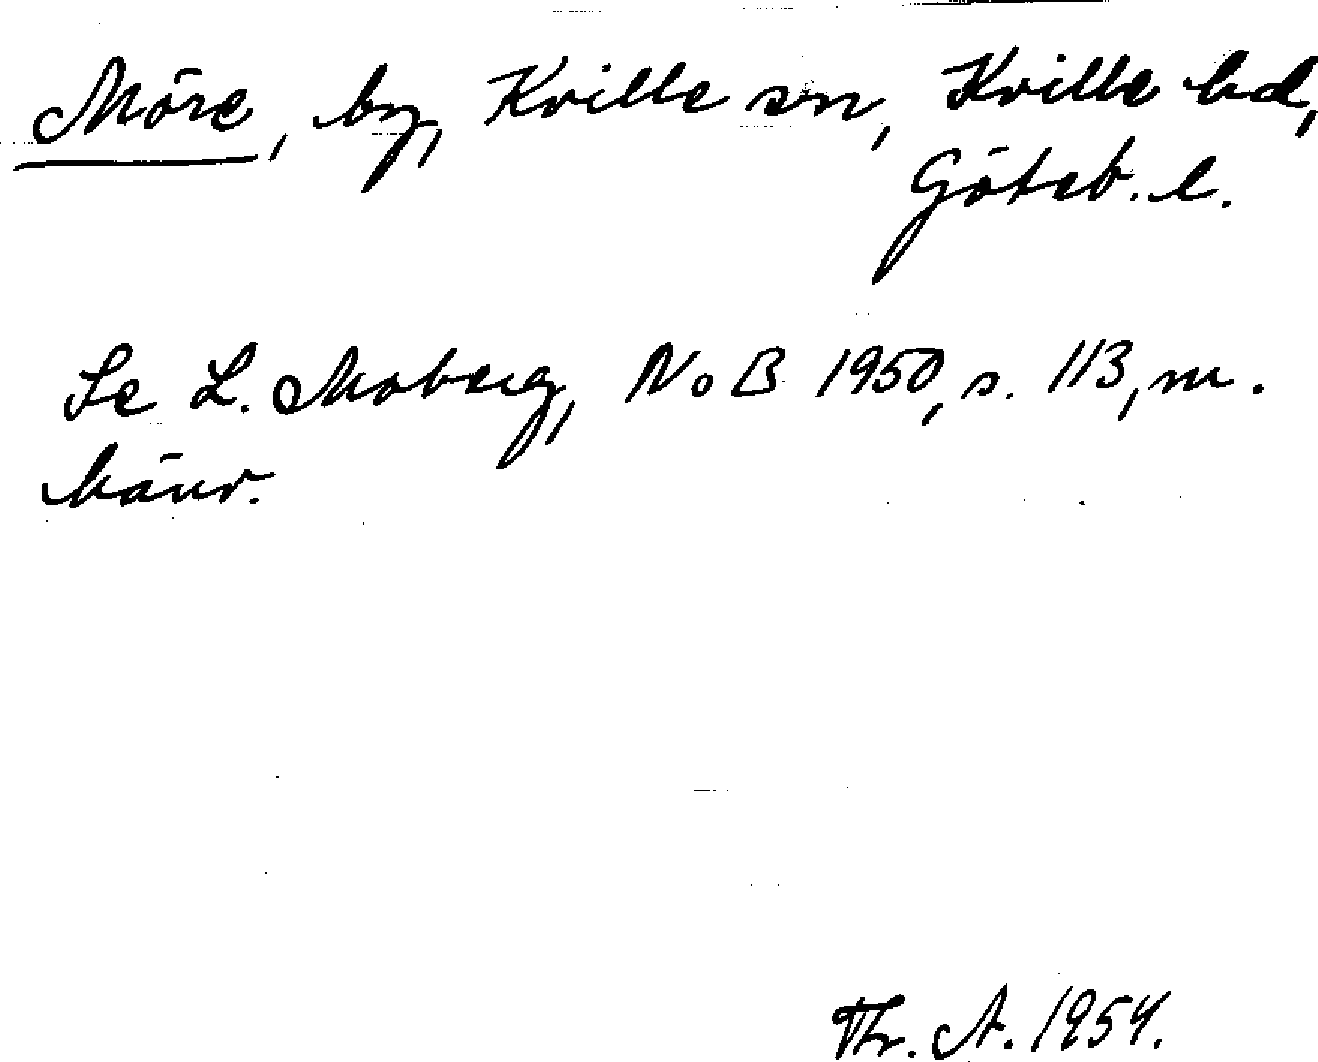 Möre, by, Kville sn, Kville hd,
Göteb. l.
Se L. Moberg, NoB 1950, s. 113, m.
hänv.
Th. A. 1954.